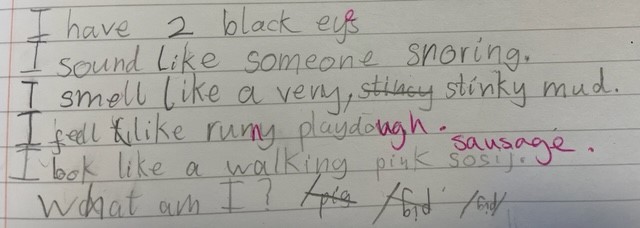 I have 2 black eys
I sound like someone snoring.
I smell like a very, stincy stinky mud.
I feel like runny playdough.
I look like a walking pink sosij. sausage.
What am I? /pig /bid /bid/